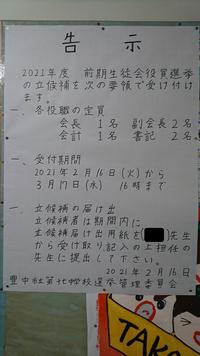 告示
2021年度 前期生徒会役員選挙
の立候補を次の要領で受け付け
ます。
一、各役職の定員
会長 1名 副会長 2名
会計 1名 書記 2名
一、受付期間
2021年 2月16日(火)から
3月17日(水) 16時まで
一、立候補の届け出
立候補者は期間内に
立候補届け出用紙を 先生
から受け取り、記入の上担任の
先生に提出して下さい。
2021年 2月16日
豊中 選挙管理委員会
TAK